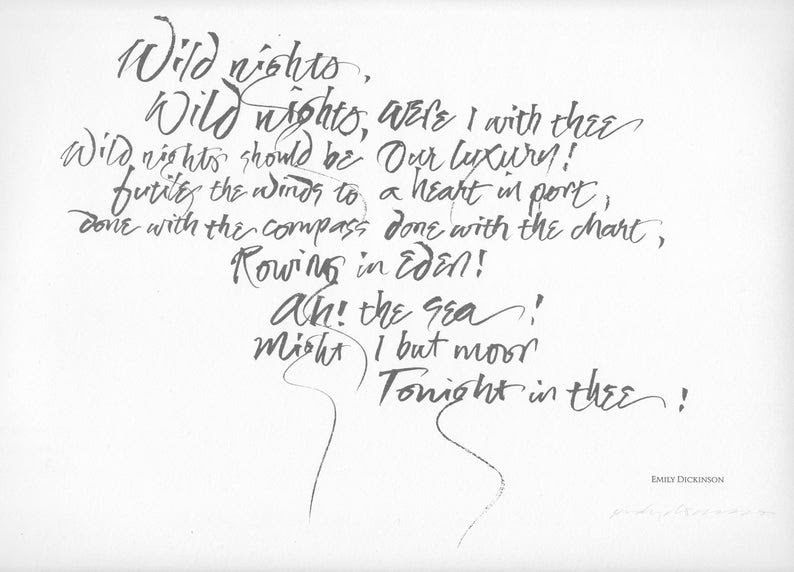 Wild nights,
Wild nights, were I with thee
Wild nights should be Our luxury!
futile the winds to a heart in port,
done with the compass done with the chart,
Rowing in Eden!
Ah! the sea!
Might I but moor
Tonight in thee!
EMILY DICKINSON